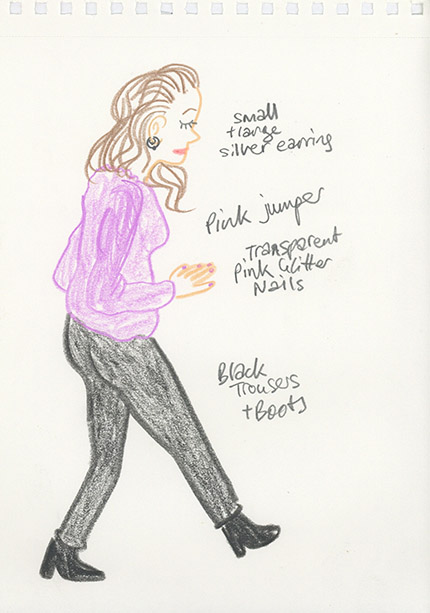 small
+large
silver earring
Pink jumper
.Transparent
Pink Glitter
Nails
Black
Trousers
+Boots